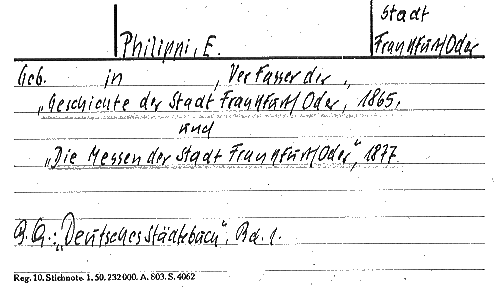 Stadt
Philippi, E. Frankfurt/Oder
Geb. in , Verfasser der „
„Geschichte der Stadt Frankfurt/Oder, 1865,
und
„Die Messen der Stadt Frankfurt/Oder", 1877.
B. Q.: „Deutsches Städtebuch". Bd. 1.
Reg. 10. Stichnote. 1. 50. 232000. A. 803. S. 4062